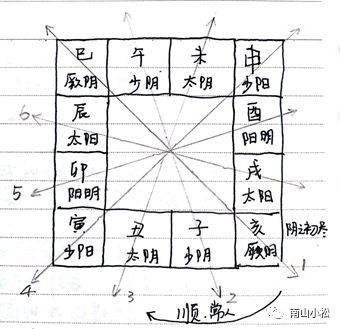 巳 午 未 申
厥阴 少阴 太阴 少阳
辰 酉
6 太阳 阳明
卯 戌
5 阳明 太阳
寅 丑 子 亥 阴之初尽
少阳 太阴 少阴 厥阴
4 3 2 1
顺.常人
南山小松